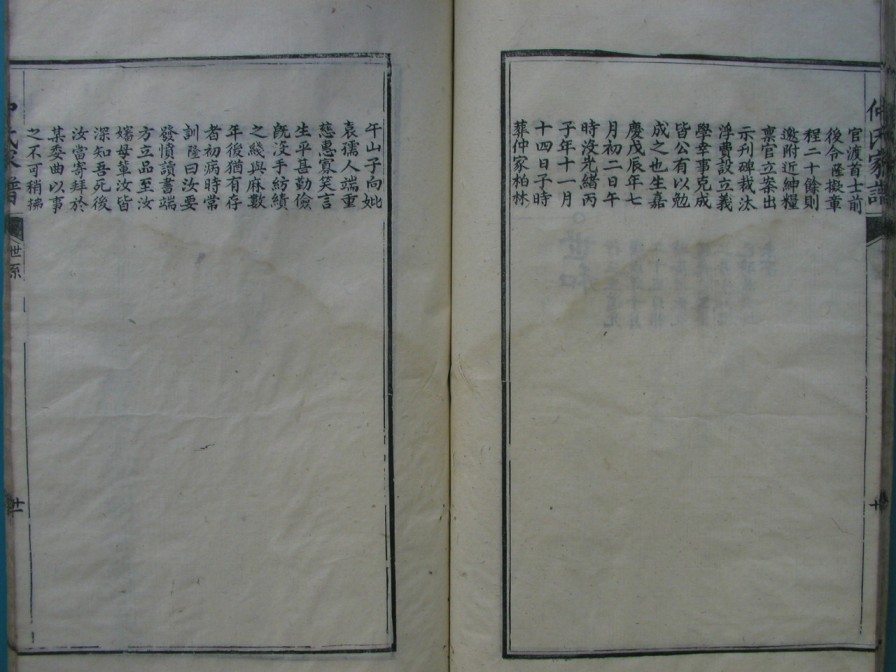 仲氏家譜
官渡首士前
後令隆擬章
程二十餘則
邀附近紳糧
稟官立案出
示刊碑裁汰
浮費設立義
學幸事克成
皆公有以勉
成之也生嘉
慶戊辰年七
月初二日午
時沒光緒丙
子年十一月
十四日子時
葬仲家柏林
午山子向妣
袁孺人端重
慈愚寡笑言
生平甚勤儉
既沒手紡績
之綫與麻數
年後猶有存
者初病時常
訓隆曰汝要
發憤讀書端
方立品至汝
嬸母輩汝皆
深知吾死後
汝當寄拜於
某委曲以事
之不可稍拂
氏家譜
世系